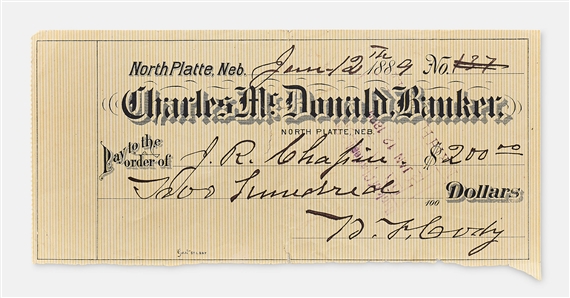 North Platte, Neb. Jan 12th 1889 No. 137
Charles McDonald, Banker,
NORTH PLATTE, NEB.
Pay to the order of J. R. Chapin $200 00
Two Hundred 100 Dollars
W. F. Cody